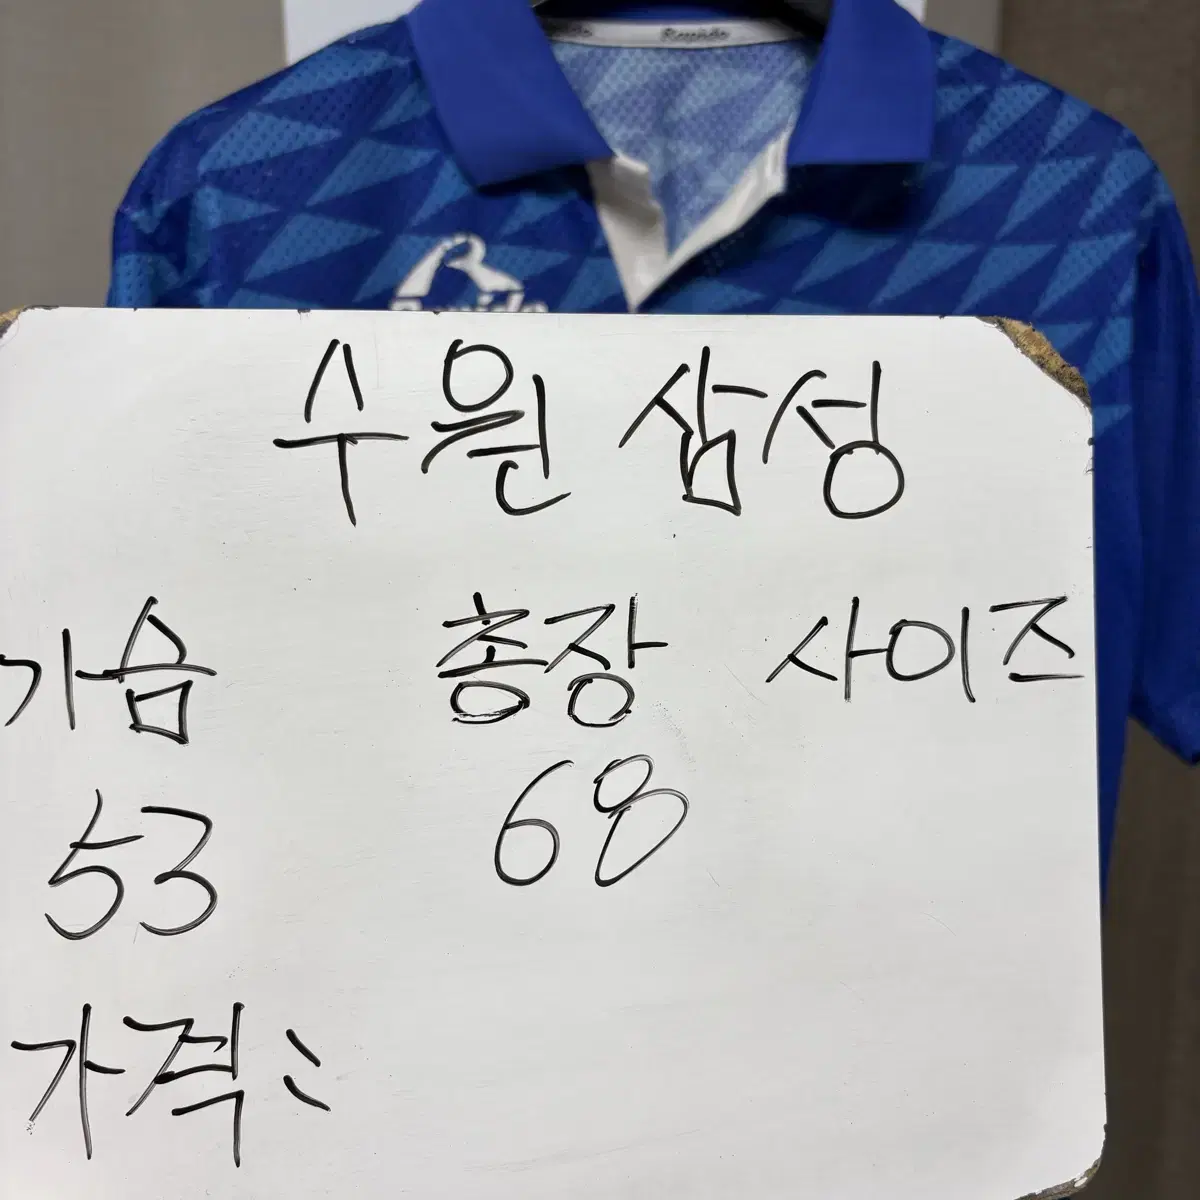 Rapido
수원 삼성
가슴 총장 사이즈
53 68
가격: